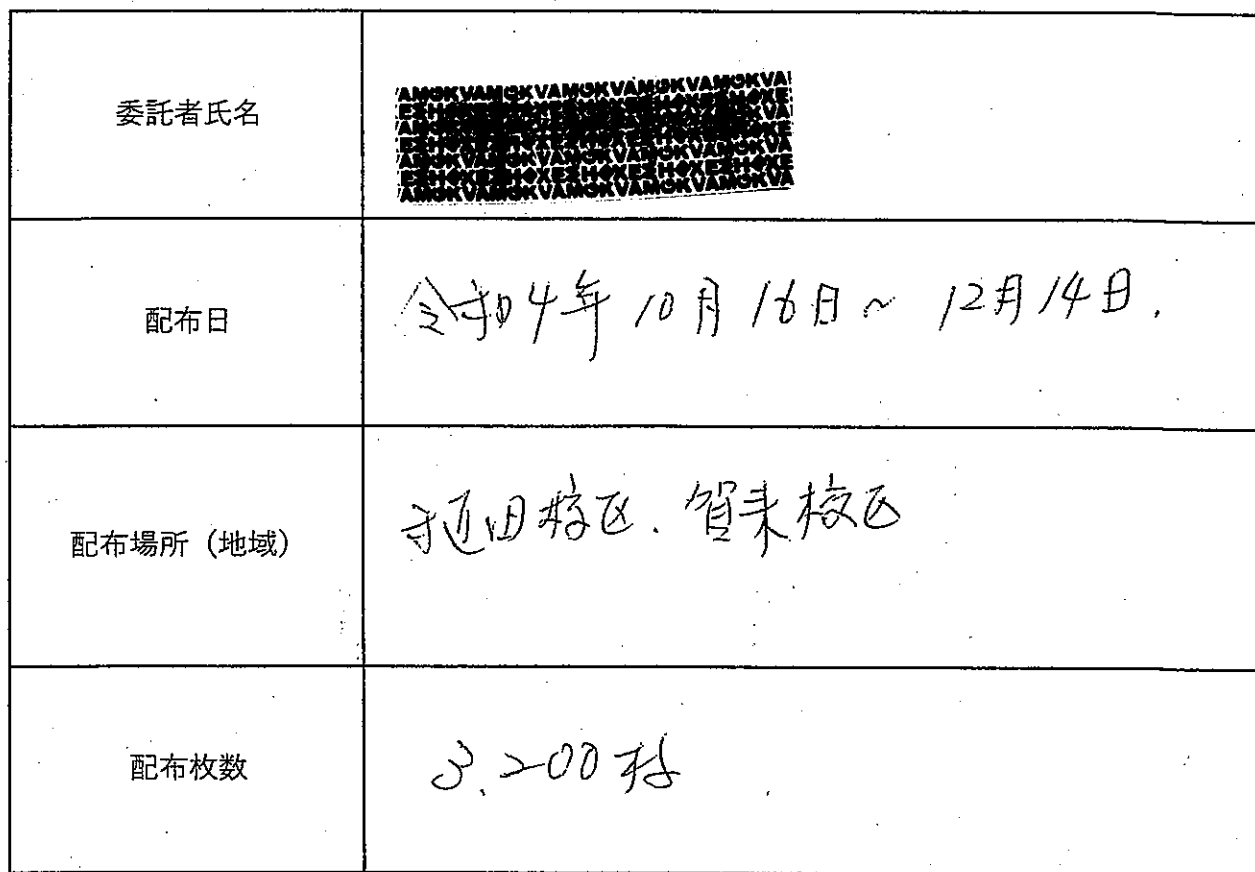 委託者氏名
配布日
令和4年10月16日～12月14日.
配布場所（地域）
稙田校区.賀来校区
配布枚数
3.200枚